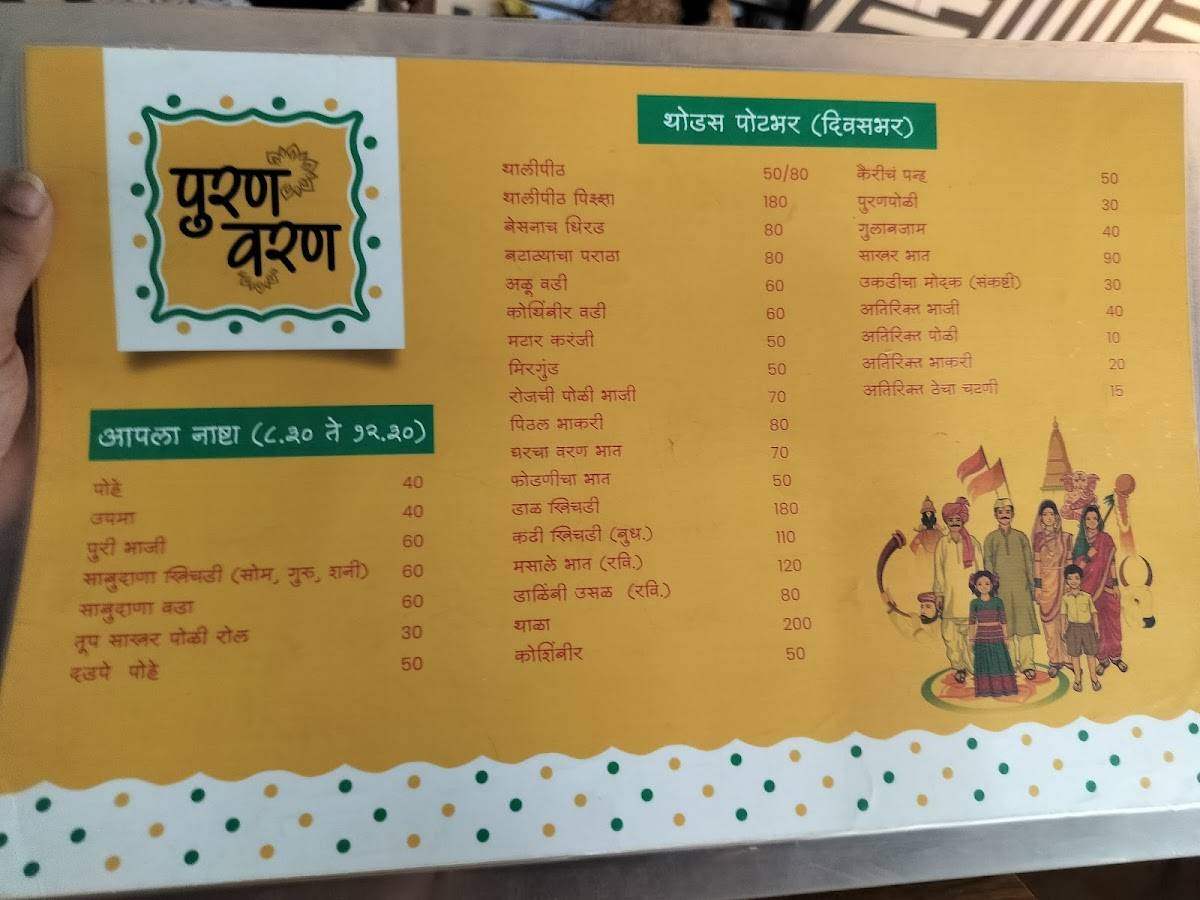 पुरण
वरण
आपला नाष्टा (८.३० ते १२.३०)
पोहे 40
उपमा 40
पुरी भाजी 60
साबुदाणा खिचडी (सोम, गुरु, शनी) 60
साबुदाणा वडा 60
तूप साखर पोळी रोल 30
दडपे पोहे 50
थोडस पोटभर (दिवसभर)
थालीपीठ 50/80
थालीपीठ पिझ्झा 180
बेसनाच धिरड 80
बटाट्याचा पराठा 80
अळू वडी 60
कोथिंबीर वडी 60
मटार करंजी 50
मिरगुंड 50
रोजची पोळी भाजी 70
पिठल भाकरी 80
घरचा वरण भात 70
फोडणीचा भात 50
डाळ खिचडी 180
कढी खिचडी (बुध.) 110
मसाले भात (रवि.) 120
डाळिंबी उसळ (रवि.) 80
थाळा 200
कोशिंबीर 50
कैरीचं पन्ह 50
पुरणपोळी 30
गुलाबजाम 40
साखर भात 90
उकडीचा मोदक (संकष्टी) 30
अतिरिक्त भाजी 40
अतिरिक्त पोळी 10
अतिरिक्त भाकरी 20
अतिरिक्त ठेचा चटणी 15